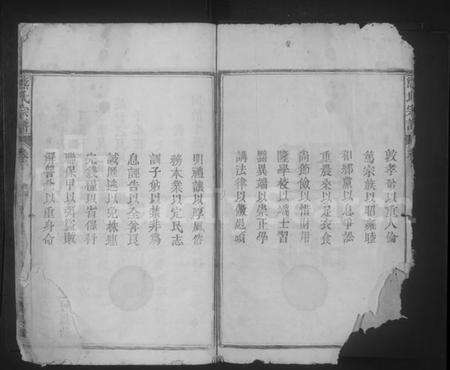 氏宗譜
敦孝弟以重人倫
篤宗族以昭雍睦
和鄉黨以息爭訟
重農桑以足衣食
尚節儉以惜財用
隆學校以端士習
黜異端以崇正學
講法律以儆愚頑
明禮讓以厚風俗
務本業以定民志
訓子弟以禁非為
息誣告以全善良
誡匿逃以免株連
完錢糧以省催科
聯保甲以弭盜賊
解讐忿以重身命
氏宗譜